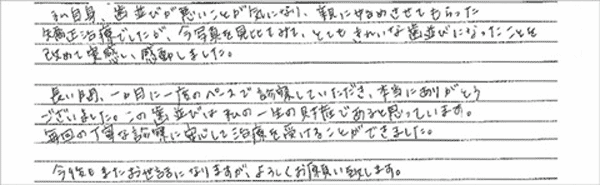 私自身、歯並びが悪いことが気になり、親にやらせてもらった
矯正治療でしたが、今写真を見比べてみて、とてもきれいな歯並びになったことを
改めて実感し、感動しました。
長い間、一か月に一度のペースで診察していただき、本当にありがとう
ございました。この歯並びは私の一生の財産であると思っています。
毎回の丁寧な診察に安心して治療を受けることができました。
今後もまたお世話になりますが、よろしくお願い致します。